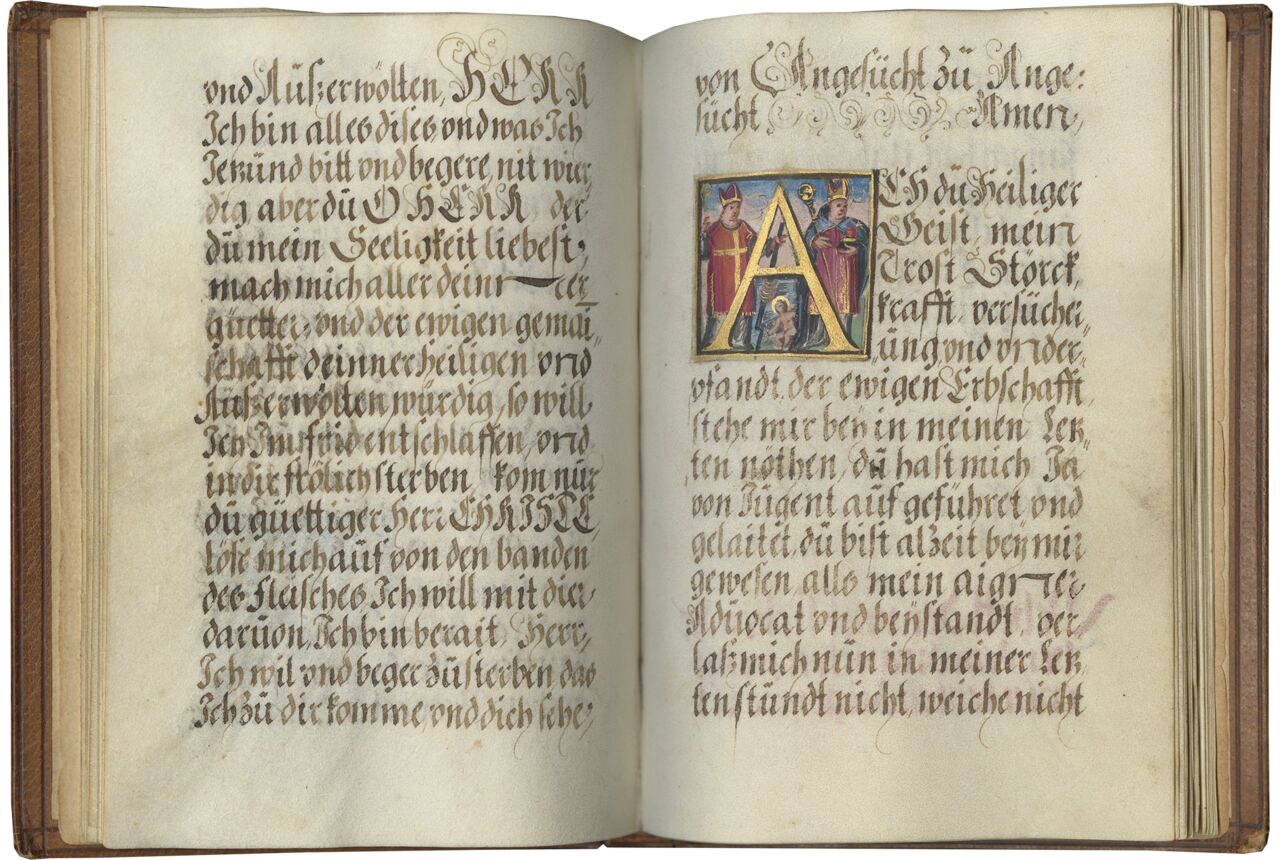 vnd Aüßerwölten, HERR
Ich bin alles dises vnd was Ich
Jetzünd bitt vnd begere, nit wier
dig aber dü O HERR der
dü mein Seeligkeit liebest,
mach mich aller deinner
güetter, vnd der ewigen gemai
schafft deinner heiligen vnd
Aüßerwölten würdig, so will
Ich Im frid entschlaffen, vnd
in dir frölich sterben, kom nür
dü güettiger Herr CHRISTE
löse mich auf von den banden
des fleisches, Ich will mit dier
daruon, Ich bin berait, Herr,
Ich wil vnd beger zü sterben das
Ich zü dir komme, vnd dich sehe,
von Angesücht zü Ange:
sücht Amen,
ACH dü Heiliger
Geist, mein
Trost Störck,
krafft, versücher„
üng vnd vnder„
pfandt, der ewigen Erbschafft,
stehe mir beÿ in meinen Letz„
ten nöthen, dü hast mich Ja
von Jügent auf geführet vnd
gelaitet, dü bist alzeit beÿ mir
gewesen alls mein aigner
Adüocat vnd beÿstandt, ver
laß mich nün in meiner Letz
ten stündt nicht, weiche nicht